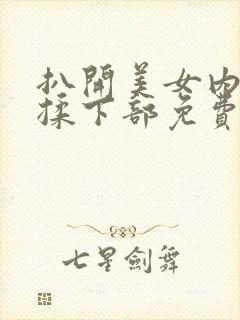 扒開美女内
揉下部免費
七星劍舞